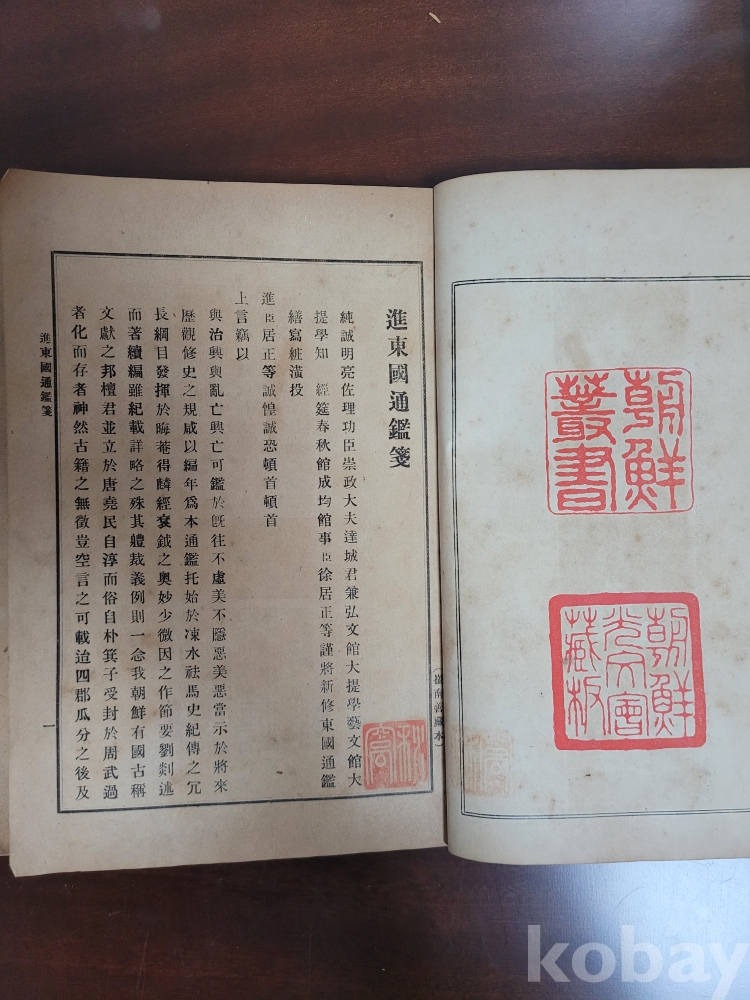 朝鮮
叢書
朝鮮
光文會
藏板
進東國通鑑箋
純誠明亮佐理功臣崇政大夫達城君兼弘文館大提學藝文館大
提學知 經筵春秋館成均館事臣徐居正等謹將新修東國通鑑
繕寫粧潢投
進臣居正等誠惶誠恐頓首頓首
上言竊以
與治興與亂亡興亡可鑑於旣往不虛美不隱惡美惡當示於將來
歷觀修史之規咸以編年爲本通鑑托始於涑水祛馬史紀傳之冗
長綱目發揮於晦菴得麟經袞鉞之奧妙少微因之作節要劉剡述
而著續編雖紀載詳略之殊其軆裁義例則一念我朝鮮有國古稱
文獻之邦檀君並立於唐堯民自淳而俗自朴箕子受封於周武過
者化而存者神然古籍之無徵豈空言之可載迨四郡瓜分之後及
進東國通鑑箋
一
藏本)
kobay